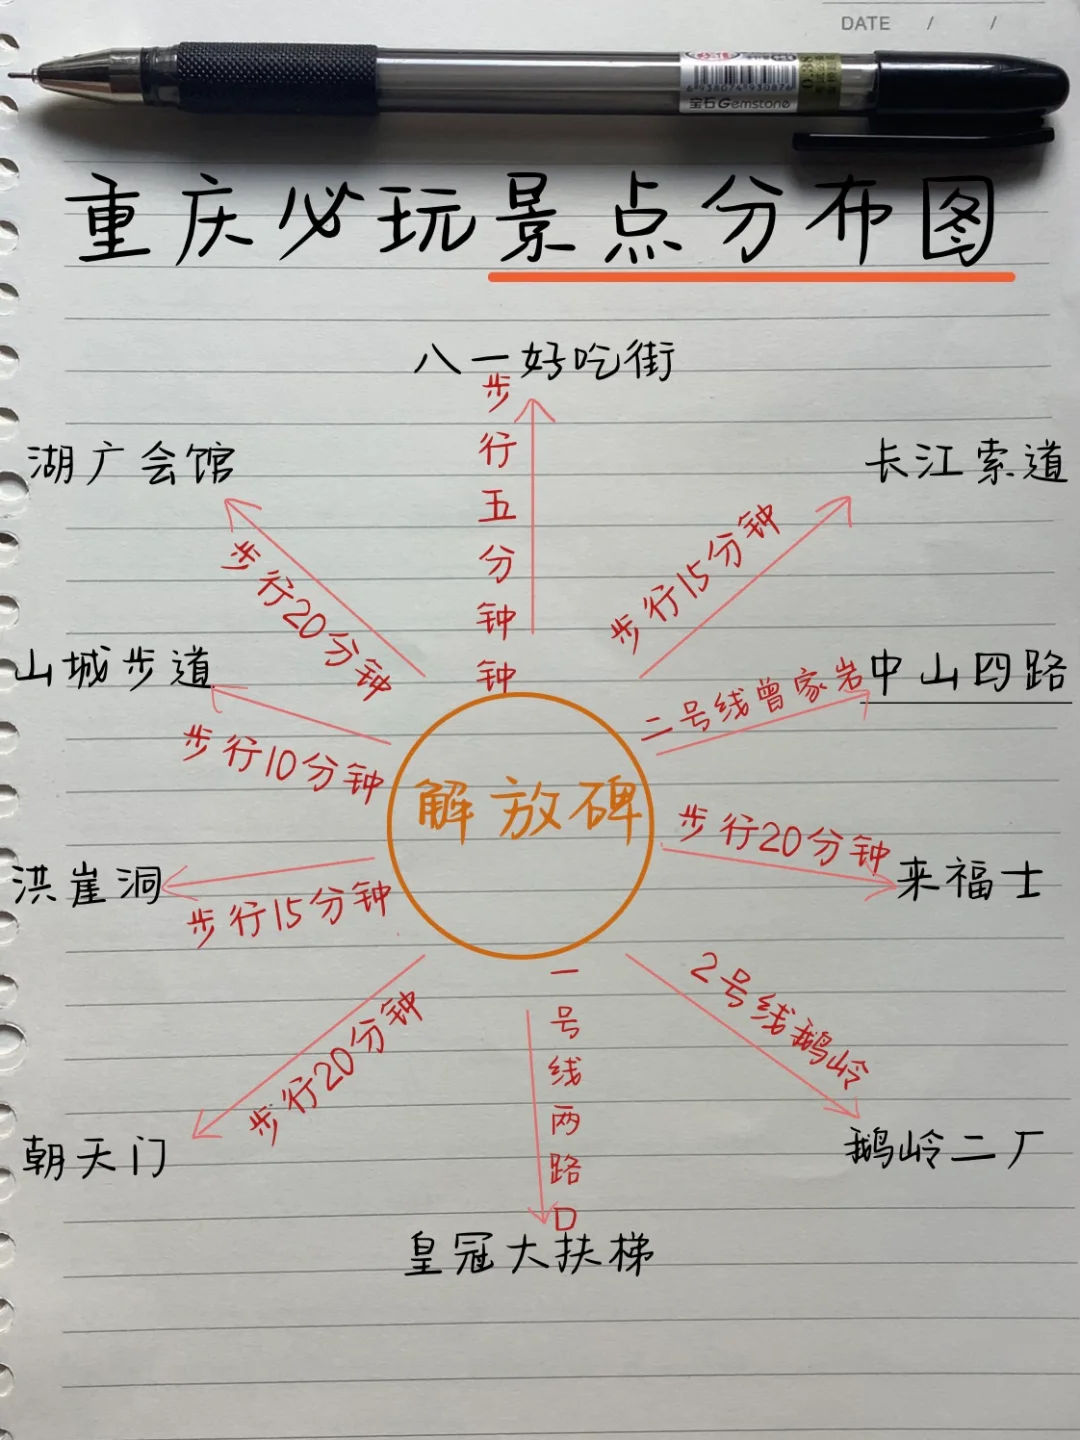 DATE / /
6938074930876
宝石Gemstone
重庆必玩景点分布图
八一好吃街
步行五分钟钟
湖广会馆
步行20分钟
长江索道
步行15分钟
山城步道
步行10分钟
中山四路
二号线曾家岩
解放碑
洪崖洞
步行15分钟
来福士
步行20分钟
朝天门
步行20分钟
一号线两路口
皇冠大扶梯
2号线鹅岭
鹅岭二厂